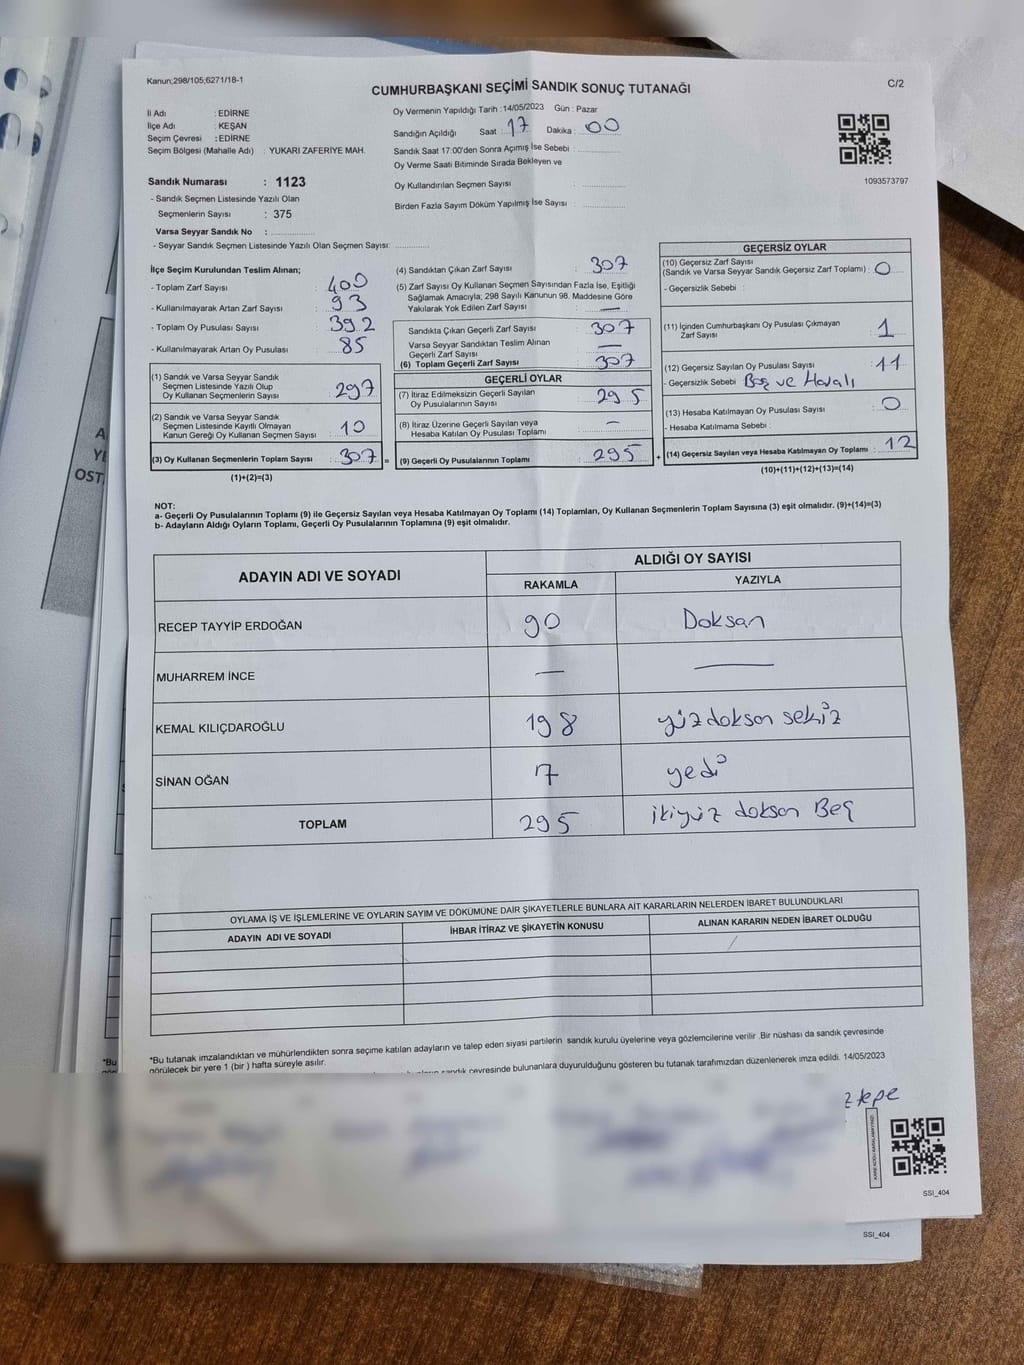 Kanun;298/105,6271/18-1
C/2
CUMHURBAŞKANI SEÇİMİ SANDIK SONUÇ TUTANAĞI
İl Adı : EDİRNE
İlçe Adı : KEŞAN
Seçim Çevresi : EDİRNE
Seçim Bölgesi (Mahalle Adı) : YUKARI ZAFERİYE MAH.
Oy Vermenin Yapıldığı Tarih :14/05/2023 Gün : Pazar
Sandığın Açıldığı Saat : 17 Dakika : 00
Sandık Saat 17:00'den Sonra Açımış İse Sebebi :
Oy Verme Saati Bitiminde Sırada Bekleyen ve
Oy Kullandırılan Seçmen Sayısı :
Birden Fazla Sayım Döküm Yapılmış İse Sayısı :
1093573797
Sandık Numarası : 1123
- Sandık Seçmen Listesinde Yazılı Olan
Seçmenlerin Sayısı : 375
Varsa Seyyar Sandık No :
- Seyyar Sandık Seçmen Listesinde Yazılı Olan Seçmen Sayısı:
İlçe Seçim Kurulundan Teslim Alınan;
- Toplam Zarf Sayısı : 400
- Kullanılmayarak Artan Zarf Sayısı : 93
- Toplam Oy Pusulası Sayısı : 392
- Kullanılmayarak Artan Oy Pusulası : 85
(1) Sandık ve Varsa Seyyar Sandık
Seçmen Listesinde Yazılı Olup
Oy Kullanan Seçmenlerin Sayısı : 297
(2) Sandık ve Varsa Seyyar Sandık
Seçmen Listesinde Kayıtlı Olmayan
Kanun Gereği Oy Kullanan Seçmen Sayısı : 10
(3) Oy Kullanan Seçmenlerin Toplam Sayısı : 307 =
(1)+(2)=(3)
(4) Sandıktan Çıkan Zarf Sayısı : 307
(5) Zarf Sayısı Oy Kullanan Seçmen Sayısından Fazla İse, Eşitliği
Sağlamak Amacıyla; 298 Sayılı Kanunun 98. Maddesine Göre
Yakılarak Yok Edilen Zarf Sayısı : —
Sandıkta Çıkan Geçerli Zarf Sayısı : 307
Varsa Seyyar Sandıktan Teslim Alınan
Geçerli Zarf Sayısı : —
(6) Toplam Geçerli Zarf Sayısı : 307
GEÇERLİ OYLAR
(7) İtiraz Edilmeksizin Geçerli Sayılan
Oy Pusulalarının Sayısı : 295
(8) İtiraz Üzerine Geçerli Sayılan veya
Hesaba Katılan Oy Pusulası Toplamı : —
(9) Geçerli Oy Pusulalarının Toplamı : 295 +
GEÇERSİZ OYLAR
(10) Geçersiz Zarf Sayısı
(Sandık ve Varsa Seyyar Sandık Geçersiz Zarf Toplamı) : 0
- Geçersizlik Sebebi :
(11) İçinden Cumhurbaşkanı Oy Pusulası Çıkmayan
Zarf Sayısı : 1
(12) Geçersiz Sayılan Oy Pusulası Sayısı : 11
- Geçersizlik Sebebi : Boş ve Hatalı
(13) Hesaba Katılmayan Oy Pusulası Sayısı : 0
- Hesaba Katılmama Sebebi :
(14) Geçersiz Sayılan veya Hesaba Katılmayan Oy Toplamı : 12
(10)+(11)+(12)+(13)=(14)
NOT:
a- Geçerli Oy Pusulalarının Toplamı (9) ile Geçersiz Sayılan veya Hesaba Katılmayan Oy Toplamı (14) Toplamları, Oy Kullanan Seçmenlerin Toplam Sayısına (3) eşit olmalıdır. (9)+(14)=(3)
b- Adayların Aldığı Oyların Toplamı, Geçerli Oy Pusulalarının Toplamına (9) eşit olmalıdır.
ADAYIN ADI VE SOYADI
ALDIĞI OY SAYISI
RAKAMLA YAZIYLA
RECEP TAYYİP ERDOĞAN 90 Doksan
MUHARREM İNCE — —
KEMAL KILIÇDAROĞLU 198 yüzdoksan sekiz
SİNAN OĞAN 7 yedi
TOPLAM 295 ikiyüz doksan Beş
OYLAMA İŞ VE İŞLEMLERİNE VE OYLARIN SAYIM VE DÖKÜMÜNE DAİR ŞİKAYETLERLE BUNLARA AİT KARARLARIN NELERDEN İBARET BULUNDUKLARI
ADAYIN ADI VE SOYADI İHBAR İTİRAZ VE ŞİKAYETİN KONUSU ALINAN KARARIN NEDEN İBARET OLDUĞU
*Bu tutanak imzalandıktan ve mühürlendikten sonra seçime katılan adayların ve talep eden siyasi partilerin sandık kurulu üyelerine veya gözlemcilerine verilir .Bir nüshası da sandık çevresinde
görülecek bir yere 1 (bir ) hafta süreyle asılır.
sandık çevresinde bulunanlara duyurulduğunu gösteren bu tutanak tarafımızdan düzenlenerek imza edildi. 14/05/2023
ztepe
SSI_404
SSI_404
*Bu